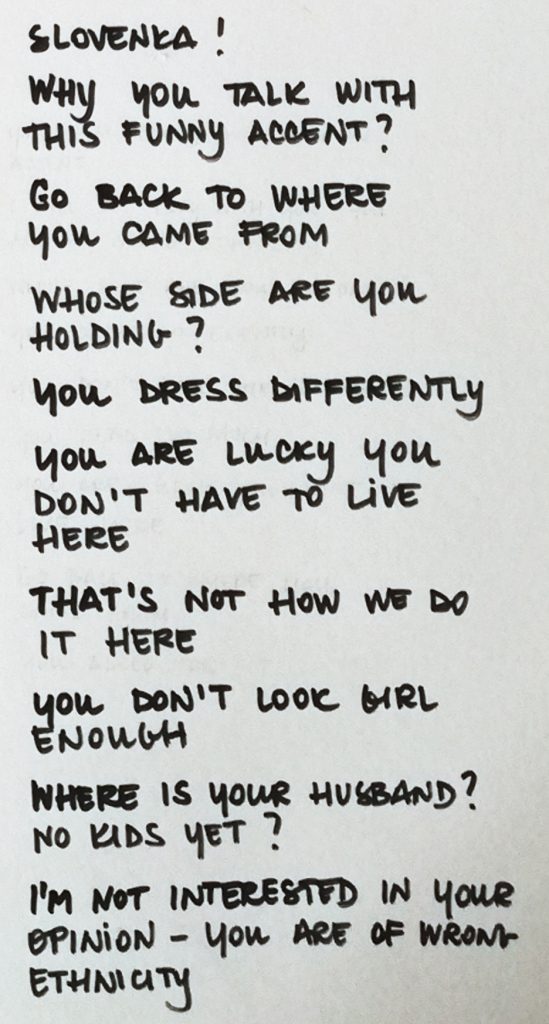 SLOVENKA!
WHY YOU TALK WITH
THIS FUNNY ACCENT?
GO BACK TO WHERE
YOU CAME FROM
WHOSE SIDE ARE YOU
HOLDING?
YOU DRESS DIFFERENTLY
YOU ARE LUCKY YOU
DON'T HAVE TO LIVE
HERE
THAT'S NOT HOW WE DO
IT HERE
YOU DON'T LOOK GIRL
ENOUGH
WHERE IS YOUR HUSBAND?
NO KIDS YET?
I'M NOT INTERESTED IN YOUR
OPINION - YOU ARE OF WRONG
ETHNICITY